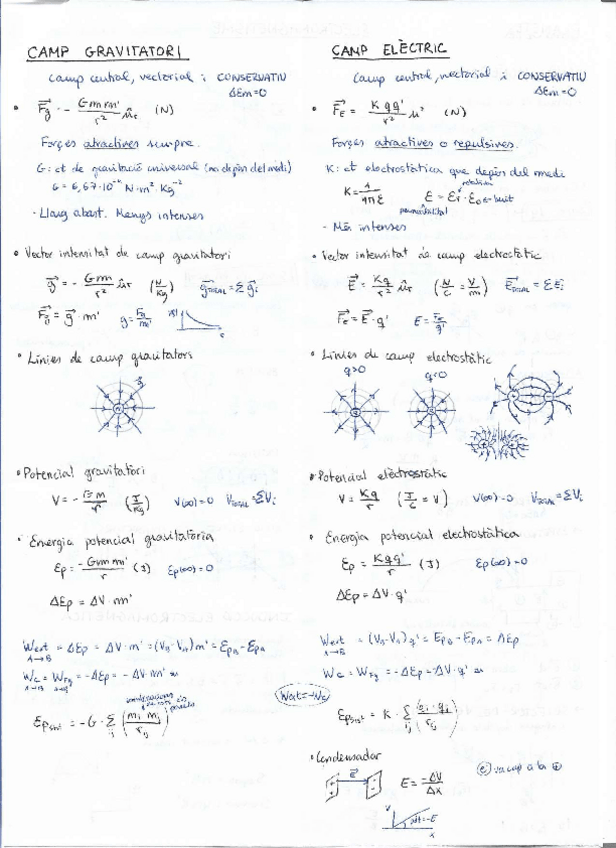 CAMP GRAVITATORI
Camp central, vectorial i CONSERVATIU
ΔEm=0
• F⃗g = - Gmm'/r² ûr (N)
Forçes atractives sempre.
G: ct de gravitació universal (no depèn del medi)
G = 6,67·10⁻¹¹ N·m²·Kg⁻²
- Llarg abast. Menys intenses
• Vector intensitat de camp gravitatori
g⃗ = - Gm/r² ûr (N/Kg) g⃗TOTAL = Σg⃗i
F⃗g = g⃗·m' g = Fg/m'
• Línies de camp gravitatori
• Potencial gravitatori
V = - Gm/r (J/Kg) V(∞)=0 VTOTAL=ΣVi
• Energia potencial gravitatòria
Ep = -Gmm'/r (J) Ep(∞)=0
ΔEp = ΔV·m'
Wext A→B = ΔEp = ΔV·m' = (VB-VA)m' = EpB-EpA
Wc A→B = WFg A→B = -ΔEp = -ΔV·m'
combinacions
Epsist = -G·Σij (mi mj/rij)
CAMP ELÈCTRIC
Camp central, vectorial i CONSERVATIU
ΔEm=0
• F⃗E = Kqq'/r² (N)
Forçes atractives o repulsives.
K: ct electrostàtica que depèn del medi
K = 1/4πε ε = εr·ε0 → buit
relativa
permitivitat
- Més intenses
• Vector intensitat de camp electrostàtic
E⃗ = Kq/r² ûr (N/C = V/m) E⃗TOTAL = ΣE⃗i
F⃗E = E⃗·q' E = FE/q'
• Línies de camp electrostàtic
q>0 q<0
• Potencial electrostàtic
V = Kq/r (J/C = V) V(∞)=0 VTOTAL=ΣVi
• Energia potencial electrostàtica
Ep = Kqq'/r (J) Ep(∞)=0
ΔEp = ΔV·q'
Wext A→B = (VB-VA)q' = EpB-EpA = ΔEp
Wc = WFE = -ΔEp = -ΔV·q'
Wext=-Wc
Epsist = K·Σij (qi·qj/rij)
• Condensador
E = -ΔV/Δx
va cap a la ⊕
V
x